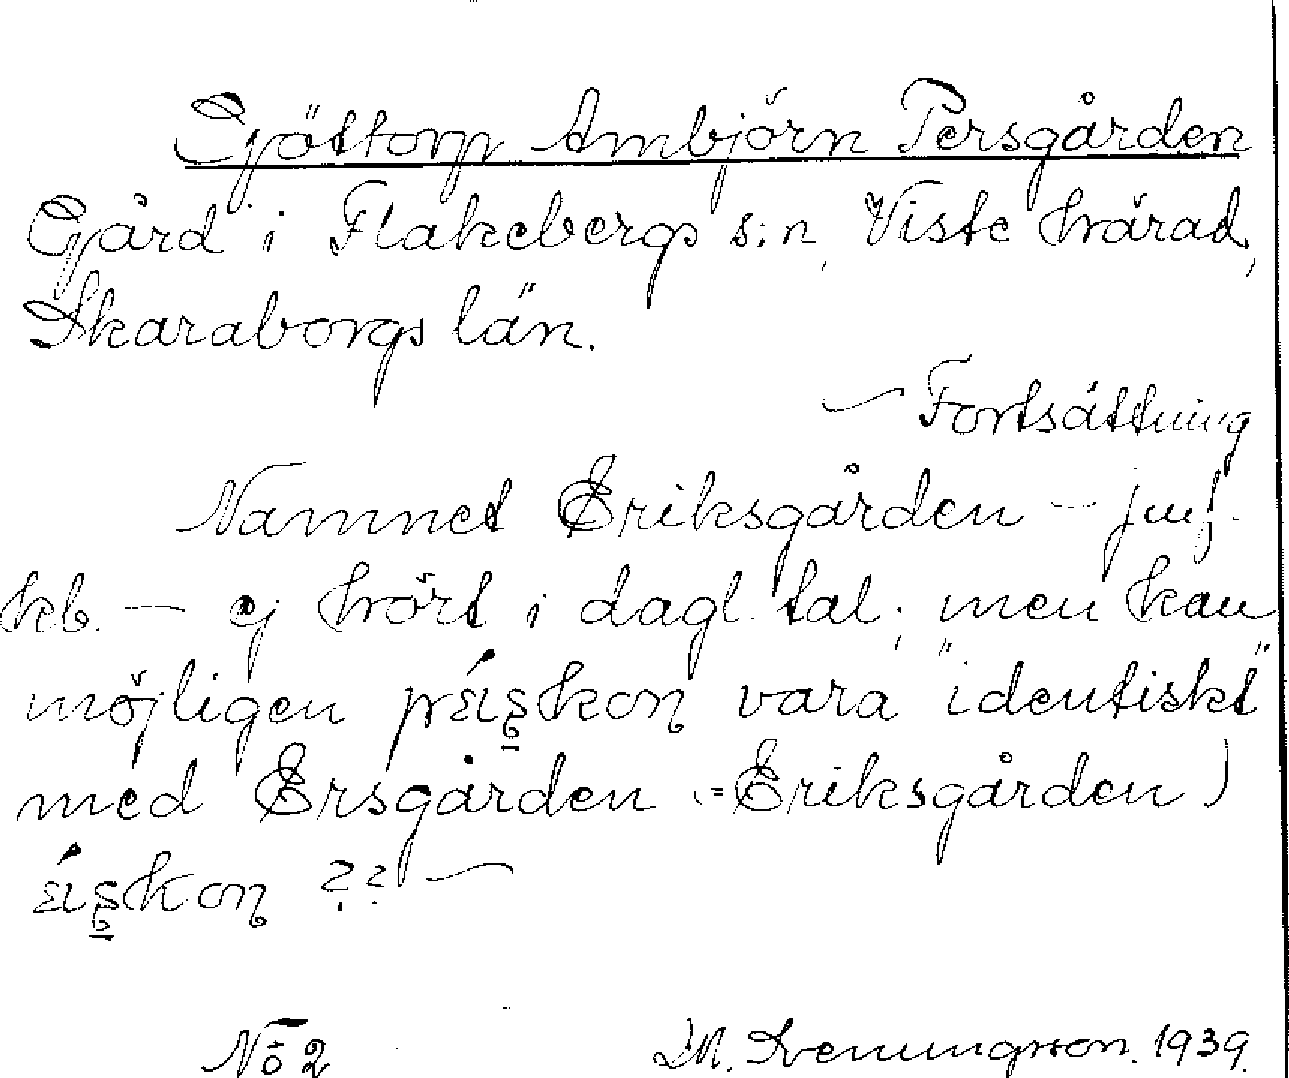 Sjöttorp Ambjörn Persgården
Gård i Flakebergs s:n, Viste härad,
Skaraborgs län.
Fortsättning
Namnet Eriksgården — jmf.
kb. — ej hört i dagl. tal; men kan
möjligen vara "identiskt"
med Ersgården (= Eriksgården)
??
No 2
1939.